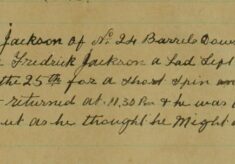 Jackson of No 24 Barrels Down
Fredrick Jackson a Lad Left
the 25th for a Short Spin an
returned at 11.30 Pm & he was
ut as he thought he Might